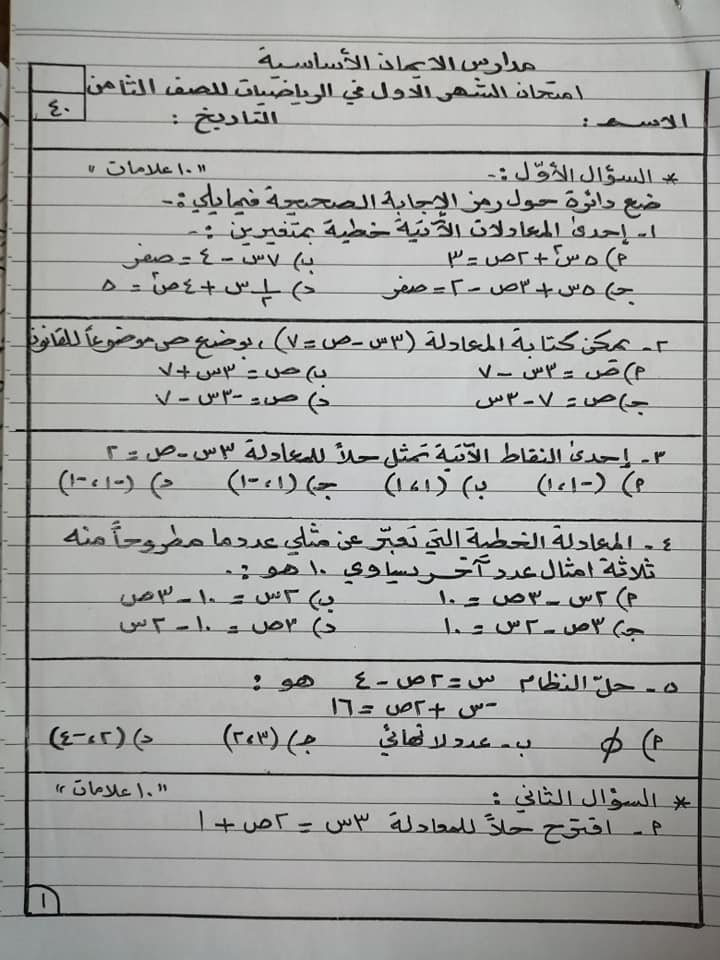 مدارس الايمان الأساسية
امتحان الشهر الاول في الرياضيات للصف الثامن
٤٠
الاسم : التاريخ :
* السؤال الأوّل :- "١٠ علامات"
ضع دائرة حول رمز الإجابة الصحيحة فيما يلي :-
١- إحدى المعادلات الآتية خطية بمتغيرين :-
أ) ٥س² + ٢ص = ٣ ب) ٧س - ٤ = صفر
ج) ٥س + ٣ص - ٢ = صفر د) ١/٢ س + ٤ص² = ٥
٢- يمكن كتابة المعادلة (٣س - ص = ٧) ، بوضع ص موضوعاً للقانون
أ) ص = ٣س - ٧ ب) ص = ٣س + ٧
ج) ص = ٧ - ٣س د) ص = -٣س - ٧
٣- إحدى النقاط الآتية تمثل حلاً للمعادلة ٣س - ص = ٢
أ) (-١ ، ١) ب) (١ ، ١) ج) (١ ، -١) د) (-١ ، -١)
٤- المعادلة الخطية التي تعبّر عن مثلي عدد ما مطروحاً منه
ثلاثة امثال عدد آخر يساوي ١٠ هو :-
أ) ٢س - ٣ص = ١٠ ب) ٢س = ١٠ - ٣ص
ج) ٣ص - ٢س = ١٠ د) ٣ص = ١٠ - ٢س
٥- حلّ النظام س = ٢ص - ٤ هو :
-س + ٢ص = ١٦
أ) ∅ ب- عدد لا نهائي ج) (٣ ، ٢) د) (٢ ، -٤)
* السؤال الثاني : "١٠ علامات"
أ- اقترح حلاً للمعادلة ٣س = ٢ص + ١
١